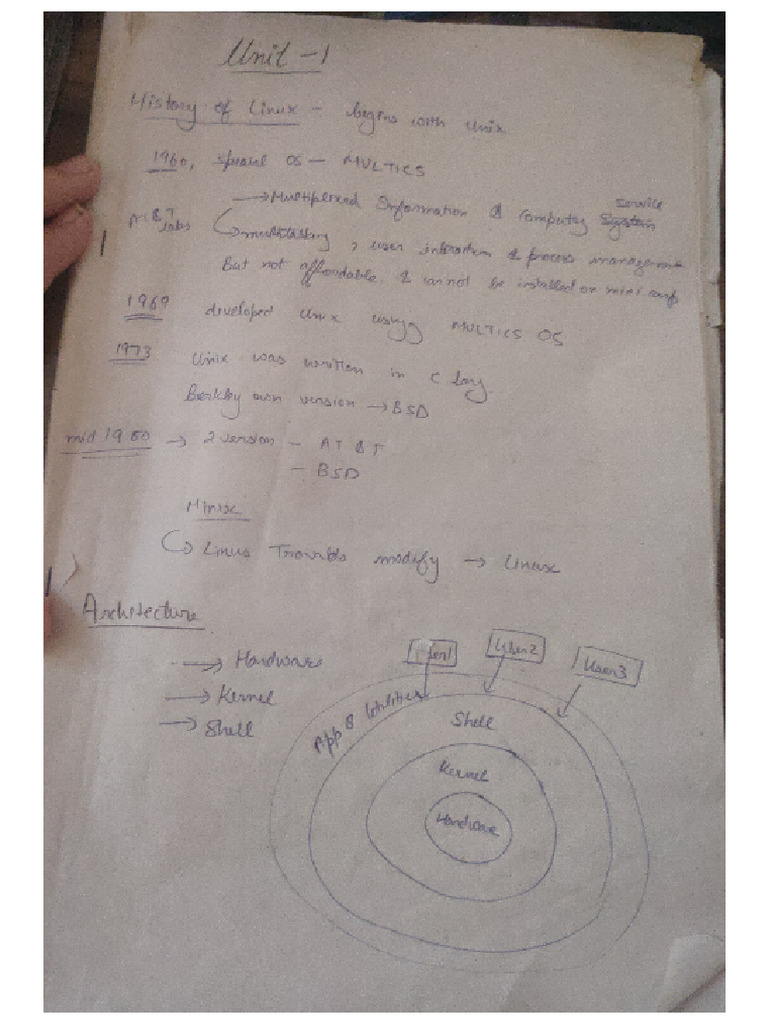 Unit - 1
History of Linux - begins with Unix
1960, special OS - MULTICS
→ Multiplexed Information & Computing System service
AT&T labs
→ multitasking, user interaction & process management
But not affordable & cannot be installed on mini comp
1969 developed Unix using MULTICS OS
1973 Unix was written in C lang.
Berkley own version → BSD
mid 1980 → 2 version - AT&T
- BSD
Minix
→ Linus Travalds modify → Linux
Architecture
→ Hardware
→ Kernel
→ Shell
User1 User2 User3
App & Utilities
Shell
Kernel
Hardware